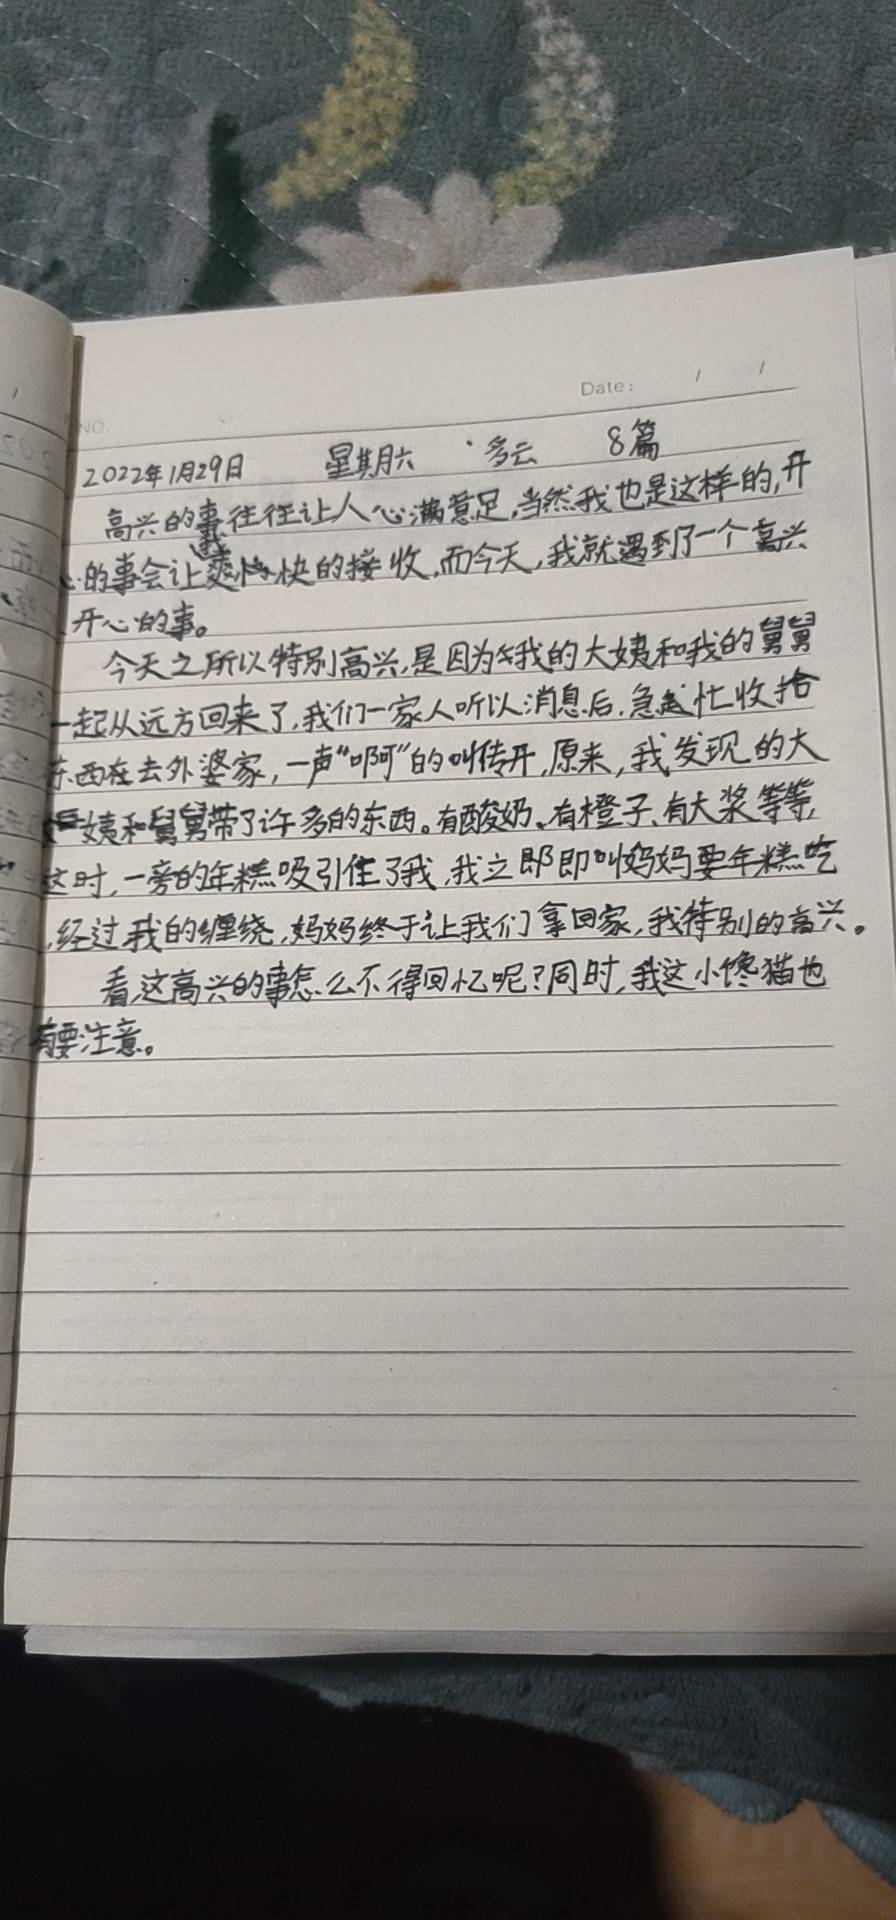 NO.
Date: / /
2022年1月29日 星期六 多云 8篇
高兴的事往往让人心满意足,当然我也是这样的,开
心的事会让我爽快的接收,而今天,我就遇到了一个高兴
、开心的事。
今天之所以特别高兴,是因为我的大姨和我的舅舅
一起从远方回来了,我们一家人听以消息后,急急忙收拾
东西在去外婆家,一声“啊阿”的叫传开,原来,我发现的大
姨和舅舅带了许多的东西。有酸奶、有橙子、有大浆等等,
这时,一旁的年糕吸引住了我,我立即即叫妈妈要年糕吃
,经过我的缠绕,妈妈终于让我们拿回家,我特别的高兴。
看,这高兴的事怎么不得回忆呢?同时,我这小馋猫也
有要注意。